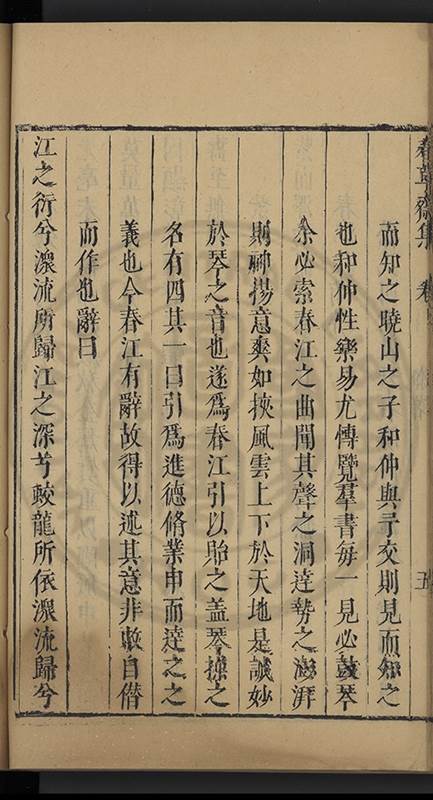 春草齋集 卷 五
而知之曉山之子和仲與予交則見而知之
也和仲性樂易尤愽覽羣書每一見必鼓琴
余必索春江之曲聞其聲之洞達勢之澎湃
則神揚意爽如挾風雲上下於天地是誠妙
於琴之音也遂爲春江引以貽之盖琴操之
名有四其一曰引爲進德脩業申而達之之
義也今春江有辭故得以述其意非敢自僣
而作也辭曰
江之衍兮濃流所歸江之深兮蛟龍所依濃流歸兮